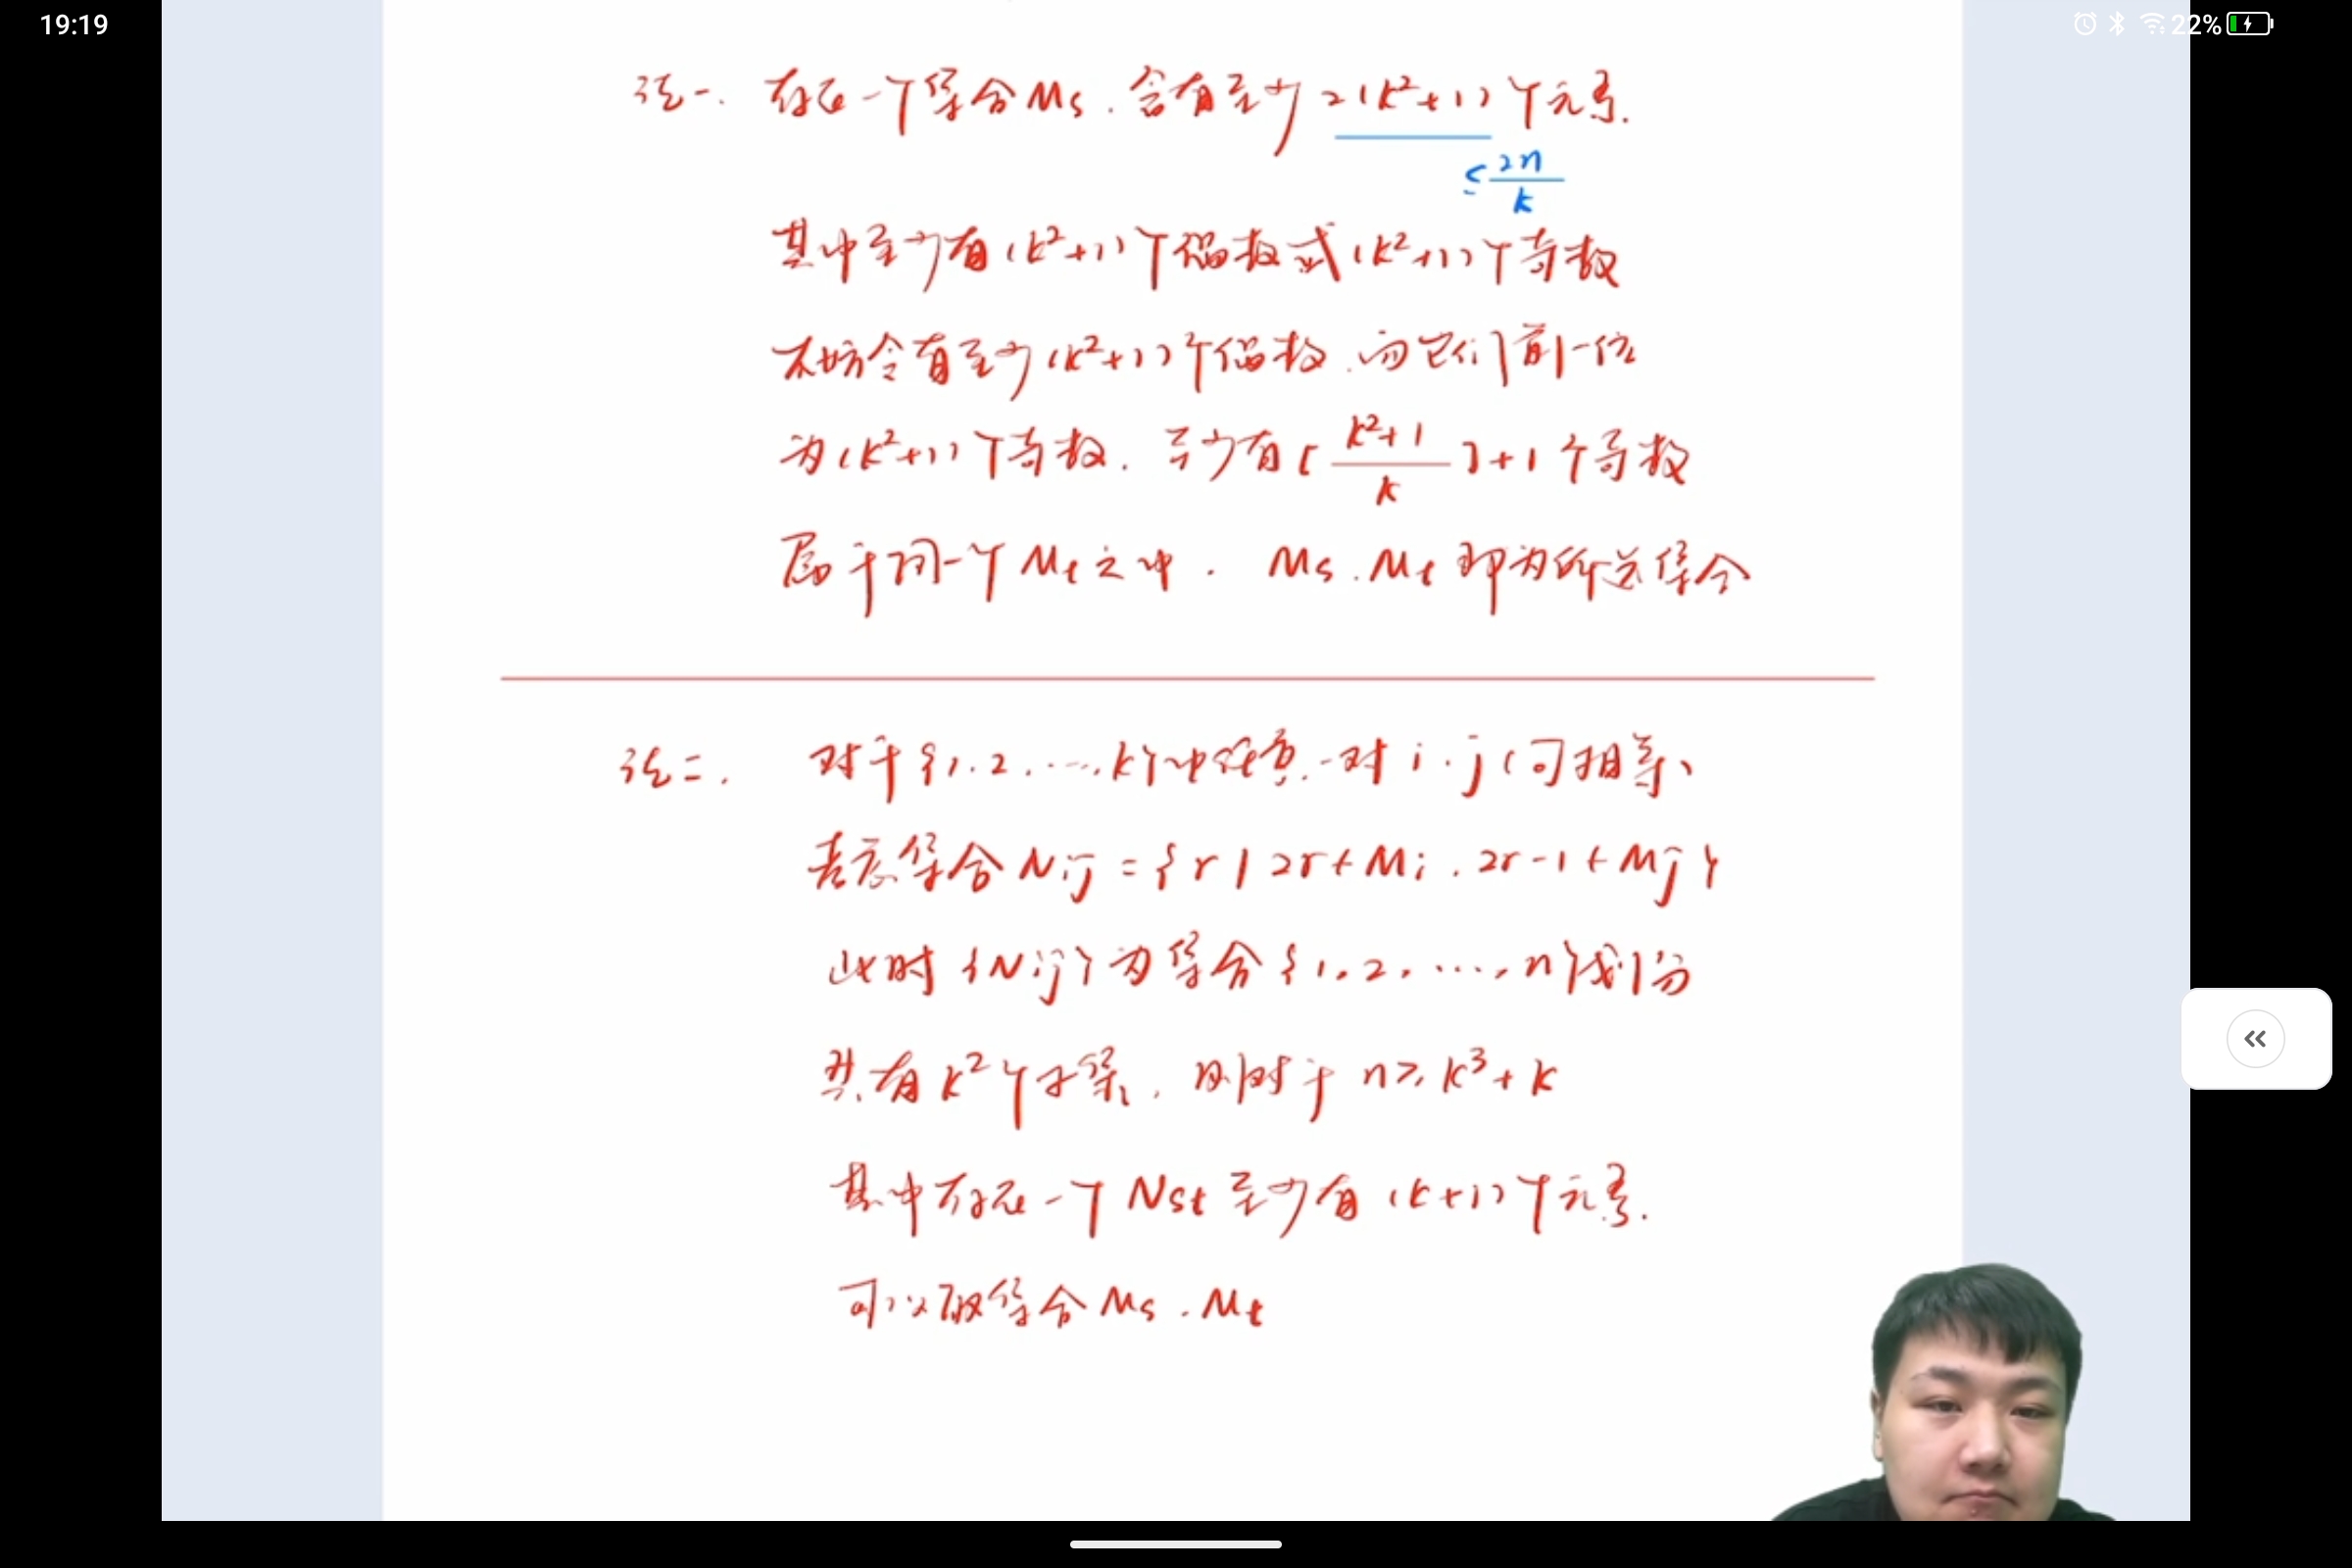 19:19
22%
法一. 存在一个集合Ms. 含有至少2(k²+1)个元素.
≤ 2n/k
其中至少有(k²+1)个偶数或(k²+1)个奇数
不妨令有至少(k²+1)个偶数.而它们前一位
为(k²+1)个奇数. 至少有[(k²+1)/k]+1个奇数
属于同一个Mt之中. Ms.Mt即为所送集合
法二. 对于{1.2.….k}中任意一对i.j(可相等)
考虑集合Nij={r|2r∈Mi.2r-1∈Mj}
此时{Nij}为集合{1.2.….n}划分
共有k²个子集. 则对于n≥k³+k
其中存在一个Nst至少有(k+1)个元素.
可以取集合Ms.Mt